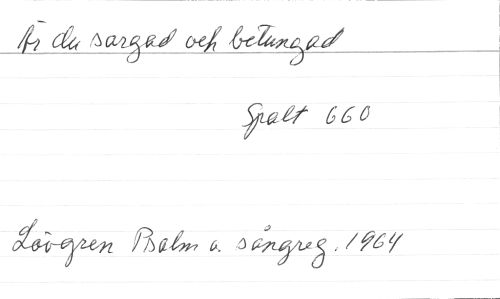 Är du sargad och betungad
Spalt 660
Lövgren Psalm o. sångreg. 1964